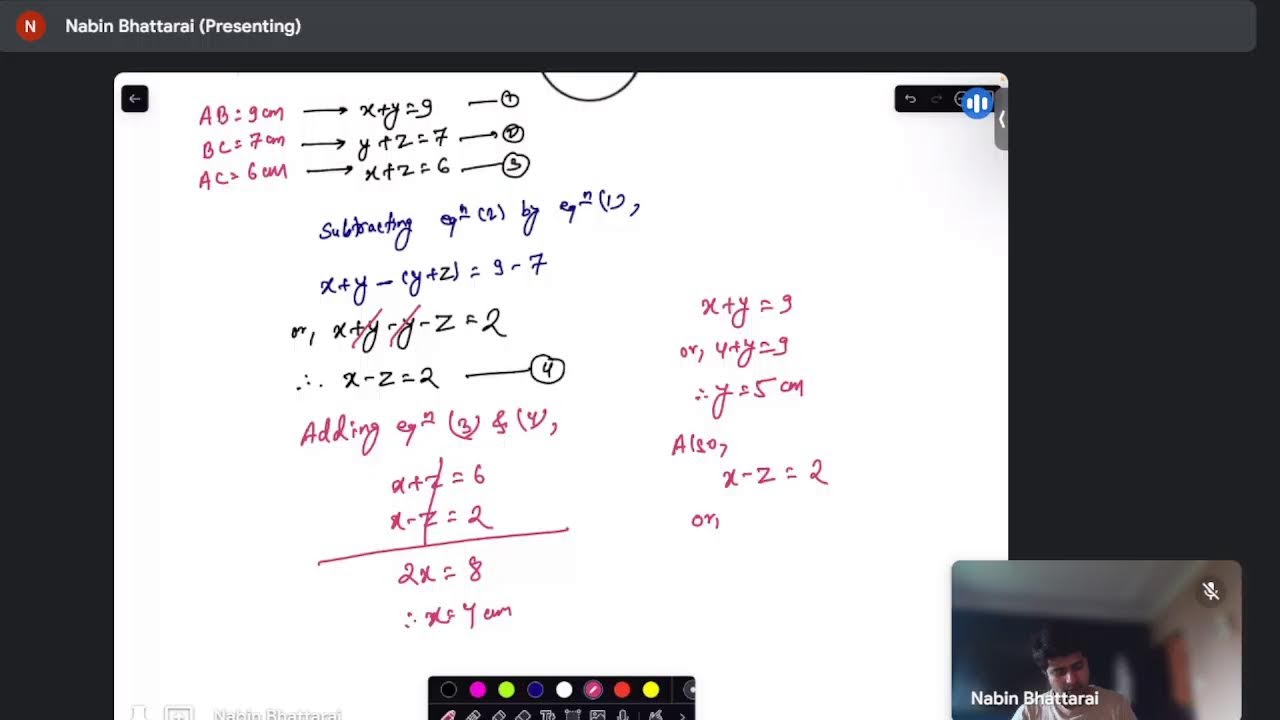 N Nabin Bhattarai (Presenting)
AB = 9 cm → x+y=9 — ①
BC = 7 cm → y+z=7 → ②
AC = 6 cm → x+z=6 — ③
Subtracting eqⁿ (2) by eqⁿ (1),
x+y-(y+z) = 9-7
or, x+y-y-z=2
∴ x-z=2 — ④
Adding eqⁿ (3) & (4),
x+z=6
x-z=2
2x=8
∴ x=4 cm
x+y=9
or, 4+y=9
∴ y=5 cm
Also,
x-z=2
or,
Nabin Bhattarai
Nabin Bhattarai